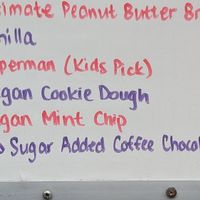 timate Peanut Butter Br
nilla
perman (Kids Pick)
gan Cookie Dough
gan Mint Chip
Sugar Added Coffee Chocol